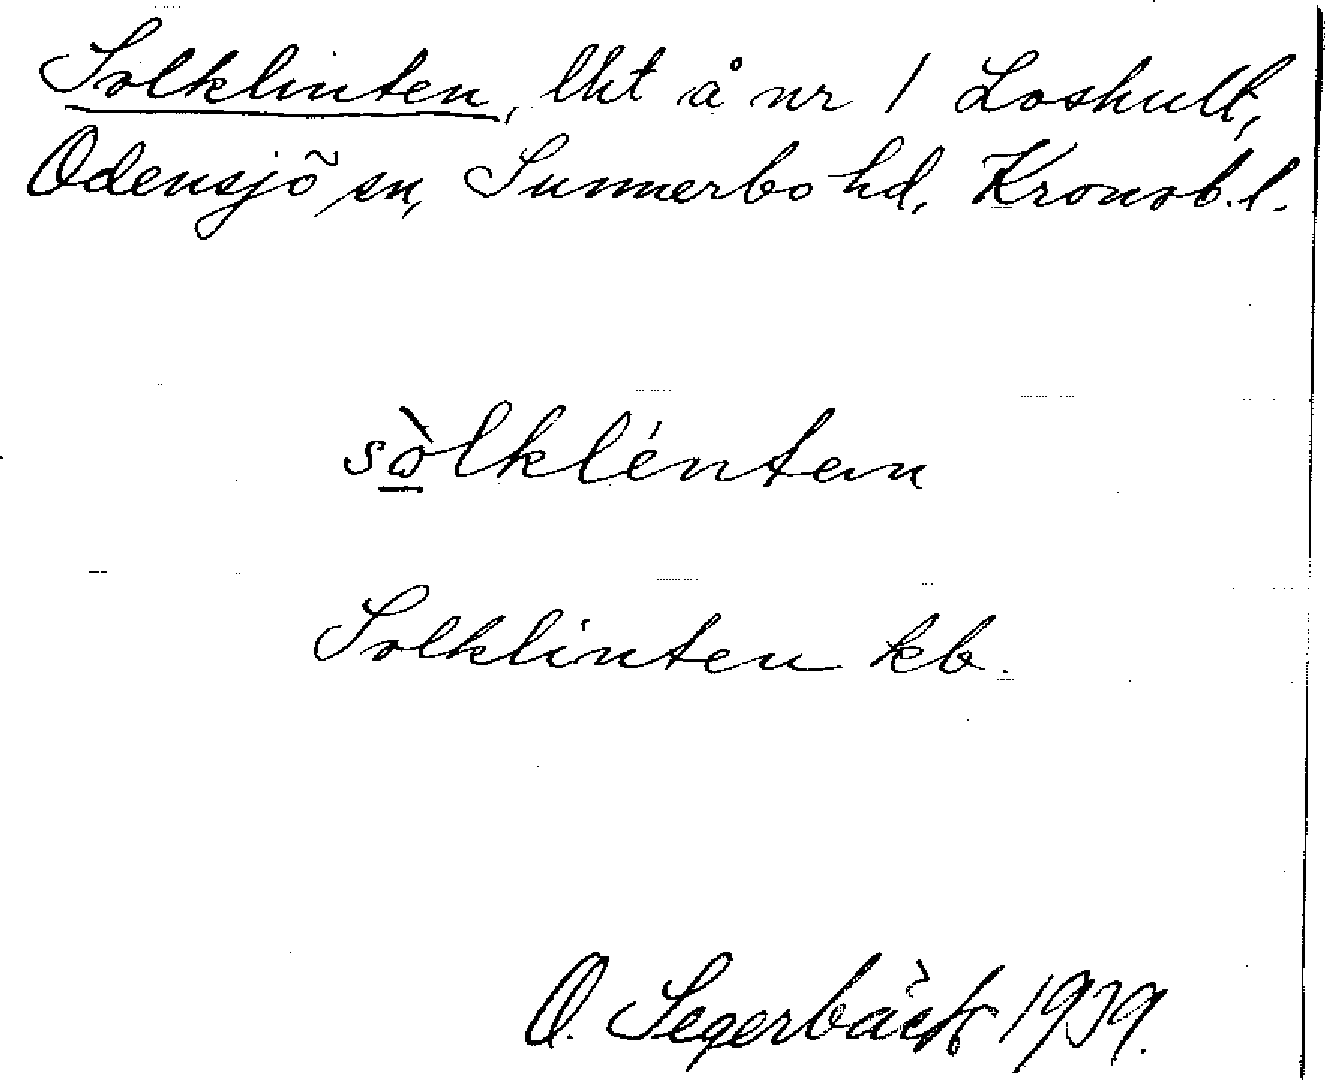 Solklinten, lht å nr 1 Loshult,
Odensjö sn, Sunnerbo hd, Kronob. l.
sòlkléntan
Solklinten kb.
O. Segerbäck 1939.